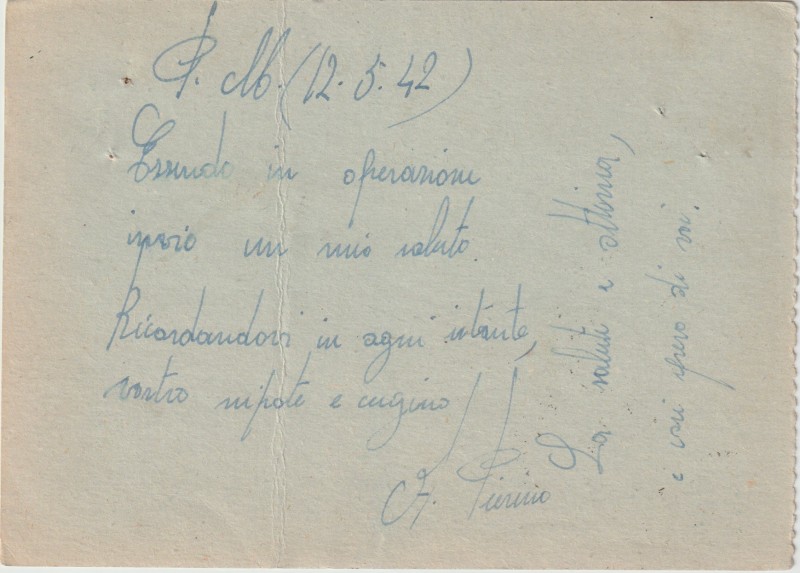 P. M. (12. 5. 42)
Essendo in operazione
invio un mio saluto
Ricordandovi in ogni istante,
vostro nipote e cugino
Pierino
La salute e ottima,
e così spero di voi.